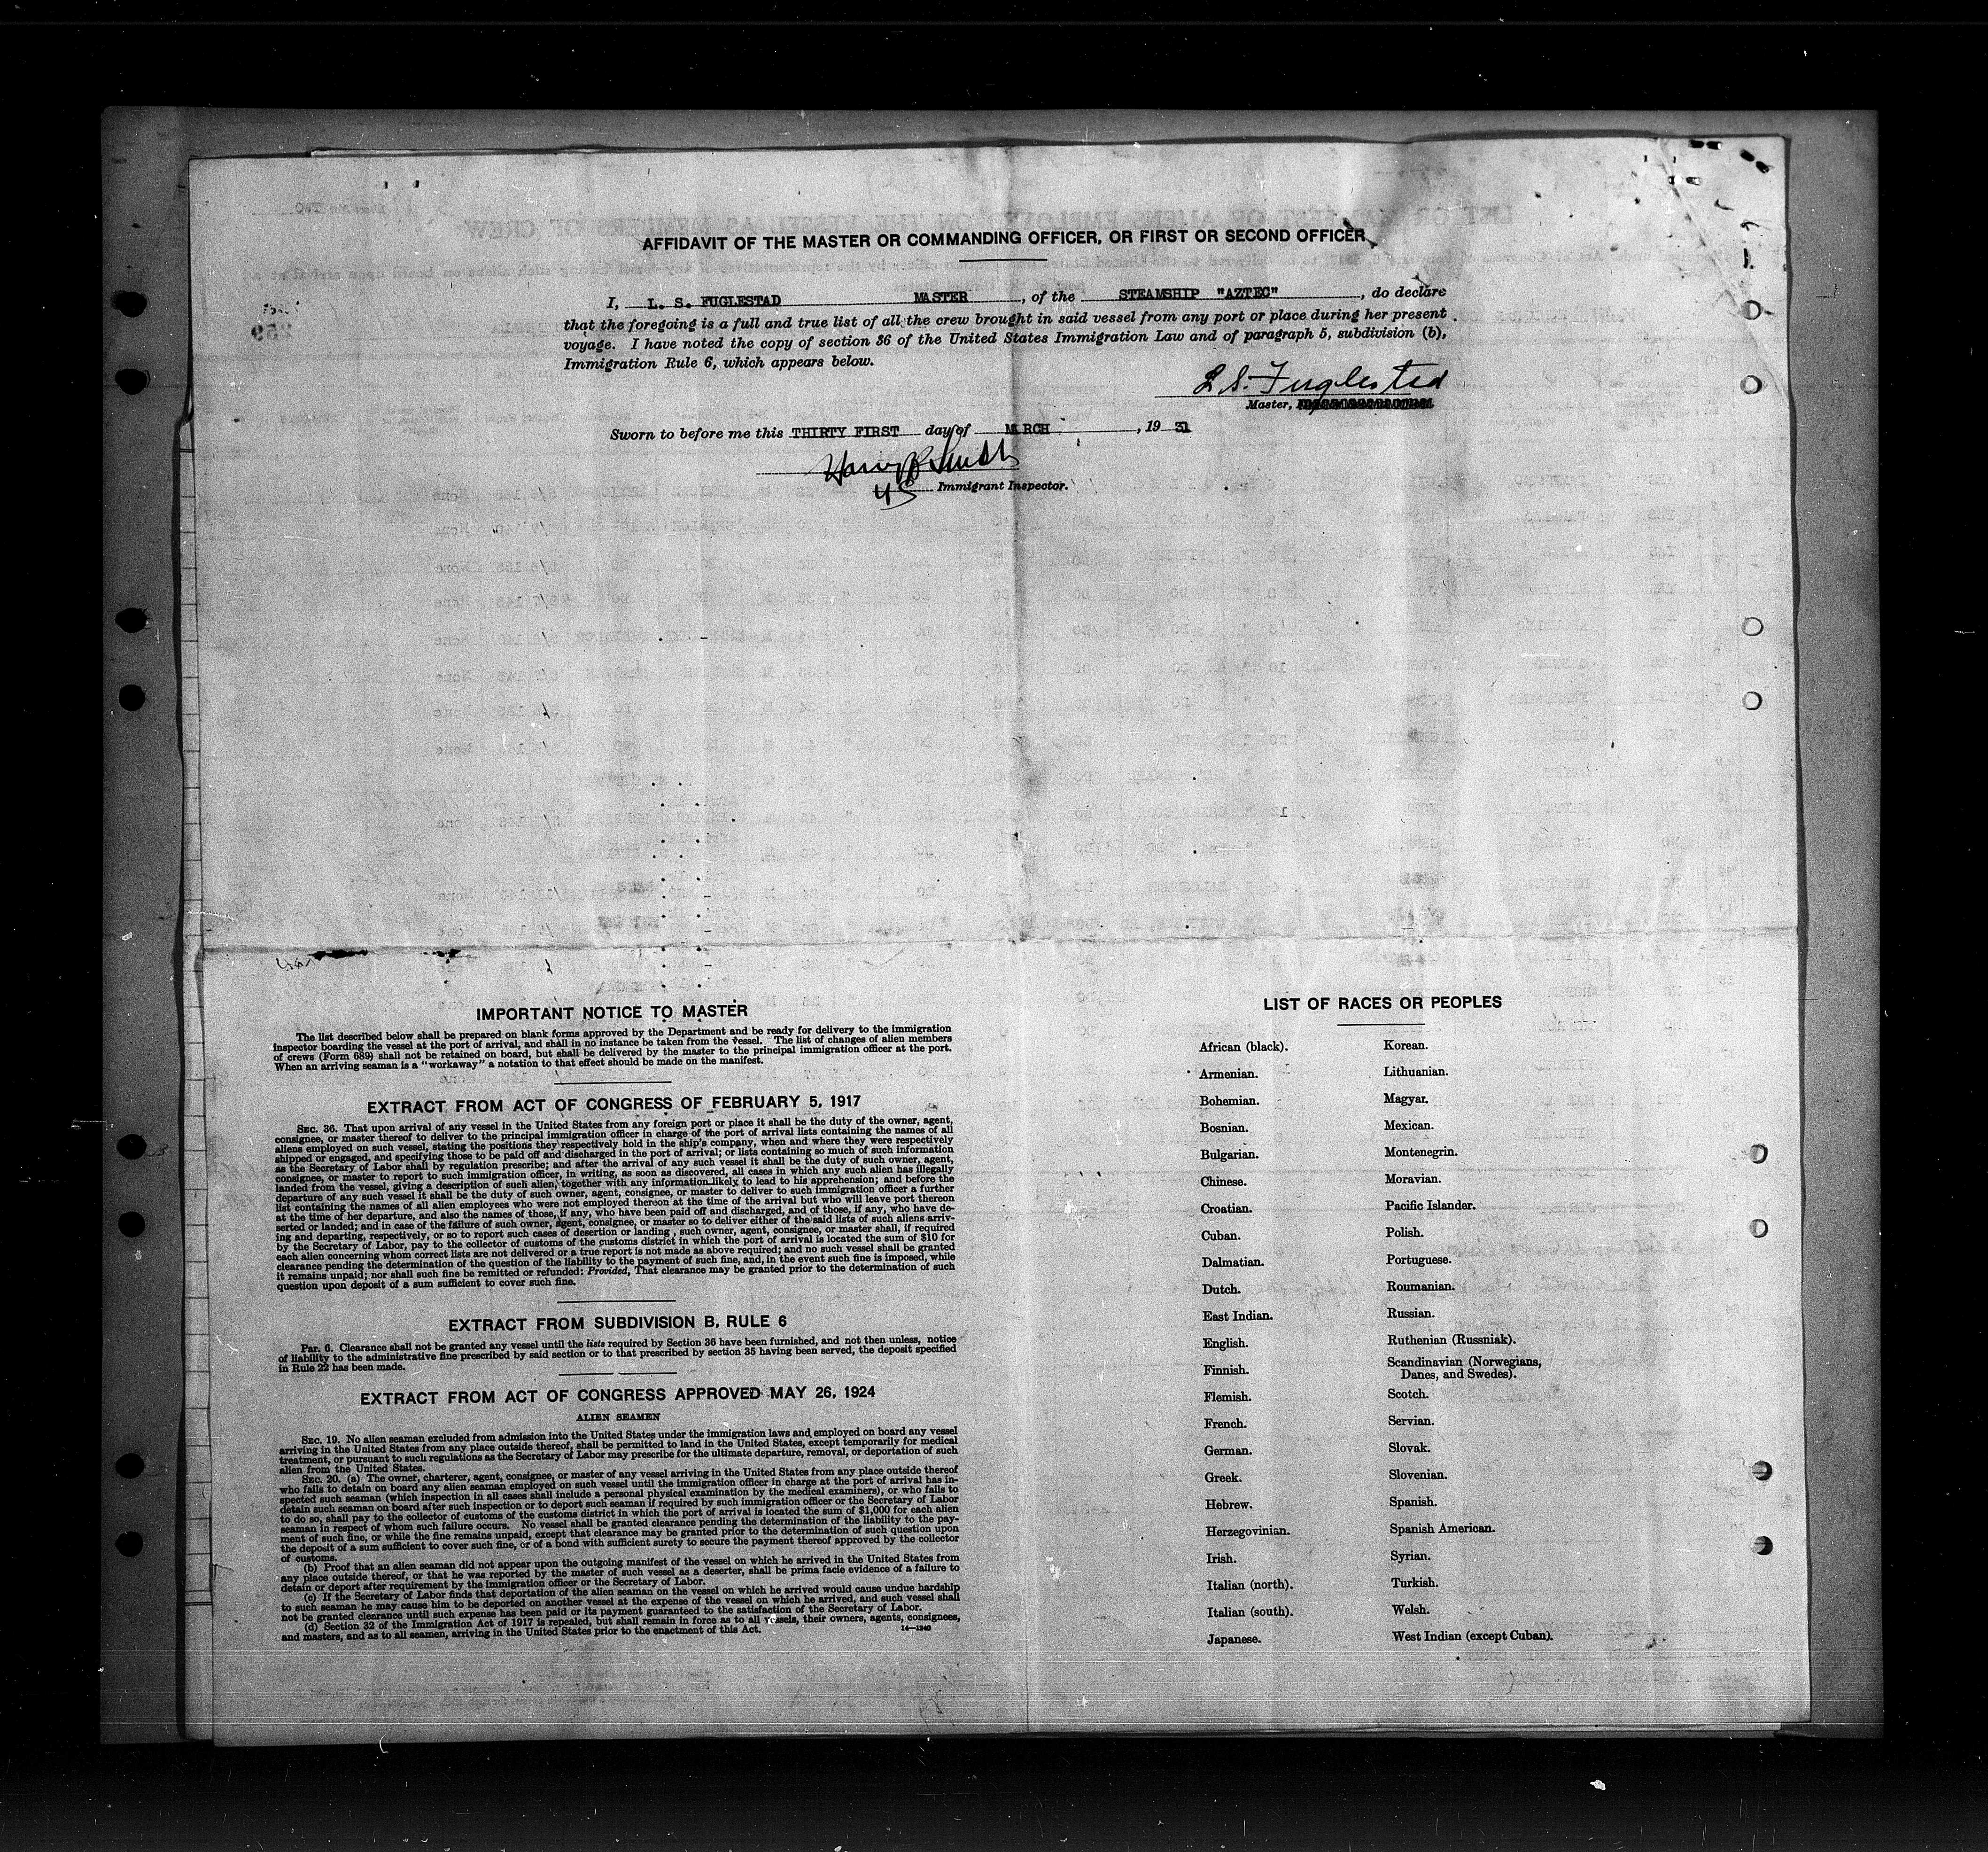 AFFIDAVIT OF THE MASTER OR COMMANDING OFFICER, OR FIRST OR SECOND OFFICER
I, L. S. FUGLESTAD MASTER, of the STEAMSHIP "AZTEC", do declare
that the foregoing is a full and true list of all the crew brought in said vessel from any port or place during her present
voyage. I have noted the copy of section 36 of the United States Immigration Law and of paragraph 5, subdivision (b),
Immigration Rule 6, which appears below.
L S. Fuglestad
Master,
Sworn to before me this THIRTY FIRST day of MARCH, 19 31
Harry B Smith
US Immigrant Inspector.
IMPORTANT NOTICE TO MASTER
The list described below shall be prepared on blank forms approved by the Department and be ready for delivery to the immigration
inspector boarding the vessel at the port of arrival, and shall in no instance be taken from the vessel. The list of changes of alien members
of crews (Form 689) shall not be retained on board, but shall be delivered by the master to the principal immigration officer at the port.
When an arriving seaman is a "workaway" a notation to that effect should be made on the manifest.
EXTRACT FROM ACT OF CONGRESS OF FEBRUARY 5, 1917
SEC. 36. That upon arrival of any vessel in the United States from any foreign port or place it shall be the duty of the owner, agent,
consignee, or master thereof to deliver to the principal immigration officer in charge of the port of arrival lists containing the names of all
aliens employed on such vessel, stating the positions they respectively hold in the ship's company, when and where they were respectively
shipped or engaged, and specifying those to be paid off and discharged in the port of arrival; or lists containing so much of such information
as the Secretary of Labor shall by regulation prescribe; and after the arrival of any such vessel it shall be the duty of such owner, agent,
consignee, or master to report to such immigration officer, in writing, as soon as discovered, all cases in which any such alien has illegally
landed from the vessel, giving a description of such alien, together with any information likely to lead to his apprehension; and before the
departure of any such vessel it shall be the duty of such owner, agent, consignee, or master to deliver to such immigration officer a further
list containing the names of all alien employees who were not employed thereon at the time of the arrival but who will leave port thereon
at the time of her departure, and also the names of those, if any, who have been paid off and discharged, and of those, if any, who have de-
serted or landed; and in case of the failure of such owner, agent, consignee, or master so to deliver either of the said lists of such aliens arriv-
ing and departing, respectively, or so to report such cases of desertion or landing, such owner, agent, consignee, or master shall, if required
by the Secretary of Labor, pay to the collector of customs of the customs district in which the port of arrival is located the sum of $10 for
each alien concerning whom correct lists are not delivered or a true report is not made as above required; and no such vessel shall be granted
clearance pending the determination of the question of the liability to the payment of such fine, and, in the event such fine is imposed, while
it remains unpaid; nor shall such fine be remitted or refunded: Provided, That clearance may be granted prior to the determination of such
question upon deposit of a sum sufficient to cover such fine.
EXTRACT FROM SUBDIVISION B, RULE 6
Par. 6. Clearance shall not be granted any vessel until the lists required by Section 36 have been furnished, and not then unless, notice
of liability to the administrative fine prescribed by said section or to that prescribed by section 35 having been served, the deposit specified
in Rule 22 has been made.
EXTRACT FROM ACT OF CONGRESS APPROVED MAY 26, 1924
ALIEN SEAMEN
SEC. 19. No alien seaman excluded from admission into the United States under the immigration laws and employed on board any vessel
arriving in the United States from any place outside thereof, shall be permitted to land in the United States, except temporarily for medical
treatment, or pursuant to such regulations as the Secretary of Labor may prescribe for the ultimate departure, removal, or deportation of such
alien from the United States.
SEC. 20. (a) The owner, charterer, agent, consignee, or master of any vessel arriving in the United States from any place outside thereof
who fails to detain on board any alien seaman employed on such vessel until the immigration officer in charge at the port of arrival has in-
spected such seaman (which inspection in all cases shall include a personal physical examination by the medical examiners), or who fails to
detain such seaman on board after such inspection or to deport such seaman if required by such immigration officer or the Secretary of Labor
to do so, shall pay to the collector of customs of the customs district in which the port of arrival is located the sum of $1,000 for each alien
seaman in respect of whom such failure occurs. No vessel shall be granted clearance pending the determination of the liability to the pay-
ment of such fine, or while the fine remains unpaid, except that clearance may be granted prior to the determination of such question upon
the deposit of a sum sufficient to cover such fine, or of a bond with sufficient surety to secure the payment thereof approved by the collector
of customs.
(b) Proof that an alien seaman did not appear upon the outgoing manifest of the vessel on which he arrived in the United States from
any place outside thereof, or that he was reported by the master of such vessel as a deserter, shall be prima facie evidence of a failure to
detain or deport after requirement by the immigration officer or the Secretary of Labor.
(c) If the Secretary of Labor finds that deportation of the alien seaman on the vessel on which he arrived would cause undue hardship
to such seaman he may cause him to be deported on another vessel at the expense of the vessel on which he arrived, and such vessel shall
not be granted clearance until such expense has been paid or its payment guaranteed to the satisfaction of the Secretary of Labor.
(d) Section 32 of the Immigration Act of 1917 is repealed, but shall remain in force as to all vessels, their owners, agents, consignees,
and masters, and as to all seamen, arriving in the United States prior to the enactment of this Act.
14—1240
LIST OF RACES OR PEOPLES
African (black).
Armenian.
Bohemian.
Bosnian.
Bulgarian.
Chinese.
Croatian.
Cuban.
Dalmatian.
Dutch.
East Indian.
English.
Finnish.
Flemish.
French.
German.
Greek.
Hebrew.
Herzegovinian.
Irish.
Italian (north).
Italian (south).
Japanese.
Korean.
Lithuanian.
Magyar.
Mexican.
Montenegrin.
Moravian.
Pacific Islander.
Polish.
Portuguese.
Roumanian.
Russian.
Ruthenian (Russniak).
Scandinavian (Norwegians,
Danes, and Swedes).
Scotch.
Servian.
Slovak.
Slovenian.
Spanish.
Spanish American.
Syrian.
Turkish.
Welsh.
West Indian (except Cuban).